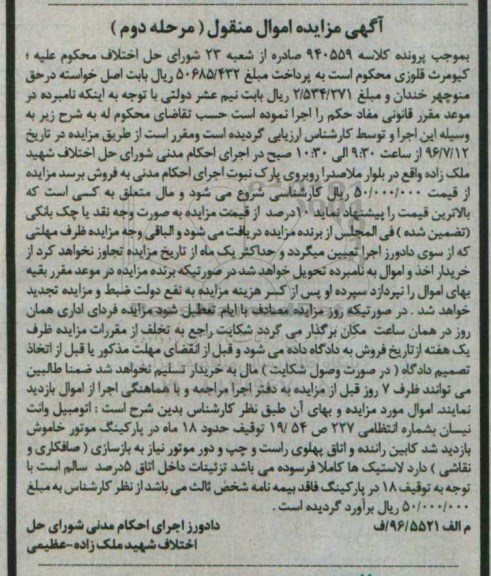 آگهی مزایده اموال منقول ( مرحله دوم )
بموجب پرونده کلاسه ۹۴۰۵۵۹ صادره از شعبه ۲۳ شورای حل اختلاف محکوم علیه ؛
کیومرث قلوزی محکوم است به پرداخت مبلغ ۵۰۶۸۵/۴۳۲ ریال بابت اصل خواسته درحق
منوچهر خندان و مبلغ ۲/۵۳۴/۲۷۱ ریال بابت نیم عشر دولتی با توجه به اینکه نامبرده در
موعد مقرر قانونی مفاد حکم را اجرا نموده است حسب تقاضای محکوم له به شرح زیر به
وسیله این اجرا و توسط کارشناس ارزیابی گردیده است ومقرر است از طریق مزایده در تاریخ
۹۶/۷/۱۲ از ساعت ۹:۳۰ الی ۱۰:۳۰ صبح در اجرای احکام مدنی شورای حل اختلاف شهید
ملک زاده واقع در بلوار ملاصدرا روبروی پارک نبوت اجرای احکام مدنی به فروش برسد مزایده
از قیمت ۵۰/۰۰۰/۰۰۰ ریال کارشناسی شروع می شود و مال متعلق به کسی است که
بالاترین قیمت را پیشنهاد نماید ۱۰درصد از قیمت مزایده به صورت وجه نقد یا چک بانکی
(تضمین شده ) فی المجلس از برنده مزایده دریافت می شود و الباقی وجه مزایده ظرف مهلتی
که از سوی دادورز اجرا تعیین میگردد و حداکثر یک ماه از تاریخ مزایده تجاوز نخواهد کرد از
خریدار اخذ و اموال به نامبرده تحویل خواهد شد در صورتیکه برنده مزایده در موعد مقرر بقیه
بهای اموال را نپردازد سپرده او پس از کسر هزینه مزایده به نفع دولت ضبط و مزایده تجدید
خواهد شد . در صورتیکه روز مزایده مصادف با ایام تعطیل شود مزایده فردای اداری همان
روز در همان ساعت مکان برگذار می گردد شکایت راجع به تخلف از مقررات مزایده ظرف
یک هفته ازتاریخ فروش به دادگاه داده می شود و قبل از انقضای مهلت مذکور یا قبل از اتخاذ
تصمیم دادگاه ( در صورت وصول شکایت ) مال به خریدار تسلیم نخواهد شد ضمنا طالبین
می توانند ظرف ۷ روز قبل از مزایده به دفتر اجرا مراجعه و با هماهنگی اجرا از اموال بازدید
نمایند. اموال مورد مزایده و بهای آن طبق نظر کارشناس بدین شرح است : اتومبیل وانت
نیسان بشماره انتظامی ۲۲۷ ص ۵۴ /۱۹ توقیف حدود ۱۸ ماه در پارکینگ موتور خاموش
بازدید شد کابین راننده و اتاق پهلوی راست و چپ و دور موتور نیاز به بازسازی ( صافکاری و
نقاشی ) دارد لاستیک ها کاملا فرسوده می باشد تزئینات داخل اتاق ۵درصد سالم است با
توجه به توقیف ۱۸ در پارکینگ فاقد بیمه نامه شخص ثالث می باشد از نظر کارشناس به مبلغ
۵۰/۰۰۰/۰۰۰ ریال برآورد گردیده است .
م الف ۹۶/۵۵۲۱/ف دادورز اجرای احکام مدنی شورای حل
اختلاف شهید ملک زاده-عظیمی